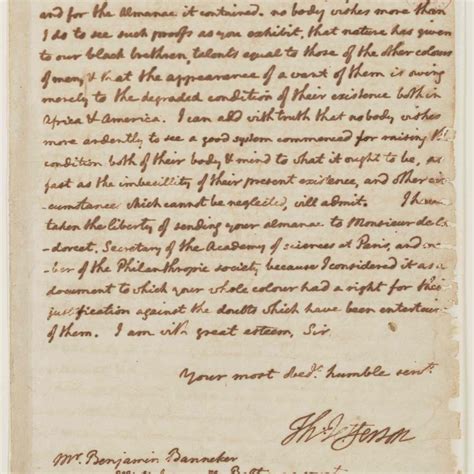 and for the Almanac it contained. no body wishes more than
I do to see such proofs as you exhibit, that nature has given
to our black brethren, talents equal to those of the other colours
of men, & that the appearance of a want of them is owing
merely to the degraded condition of their existence both in
Africa & America. I can add with truth that no body wishes
more ardently to see a good system commenced for raising the
condition both of their body & mind to what it ought to be, as
fast as the imbecillity of their present existence, and other cir
cumstance which cannot be neglected, will admit. I have
taken the liberty of sending your almanac to Monsieur de
dorcet, Secretary of the Academy of sciences at Paris, and
ber of the Philanthropic society because I considered it as a
document to which your whole colour had a right for their
justification against the doubts which have been entertain
of them. I am with great esteem, Sir
Your most obedt. humble servt.
Th: Jefferson
Mr. Benjamin Banneker